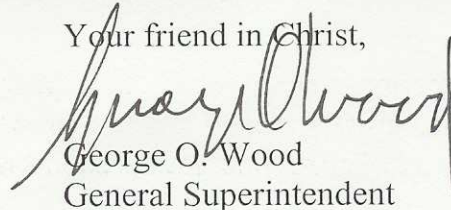 Your friend in Christ,
George O. Wood
George O. Wood
General Superintendent